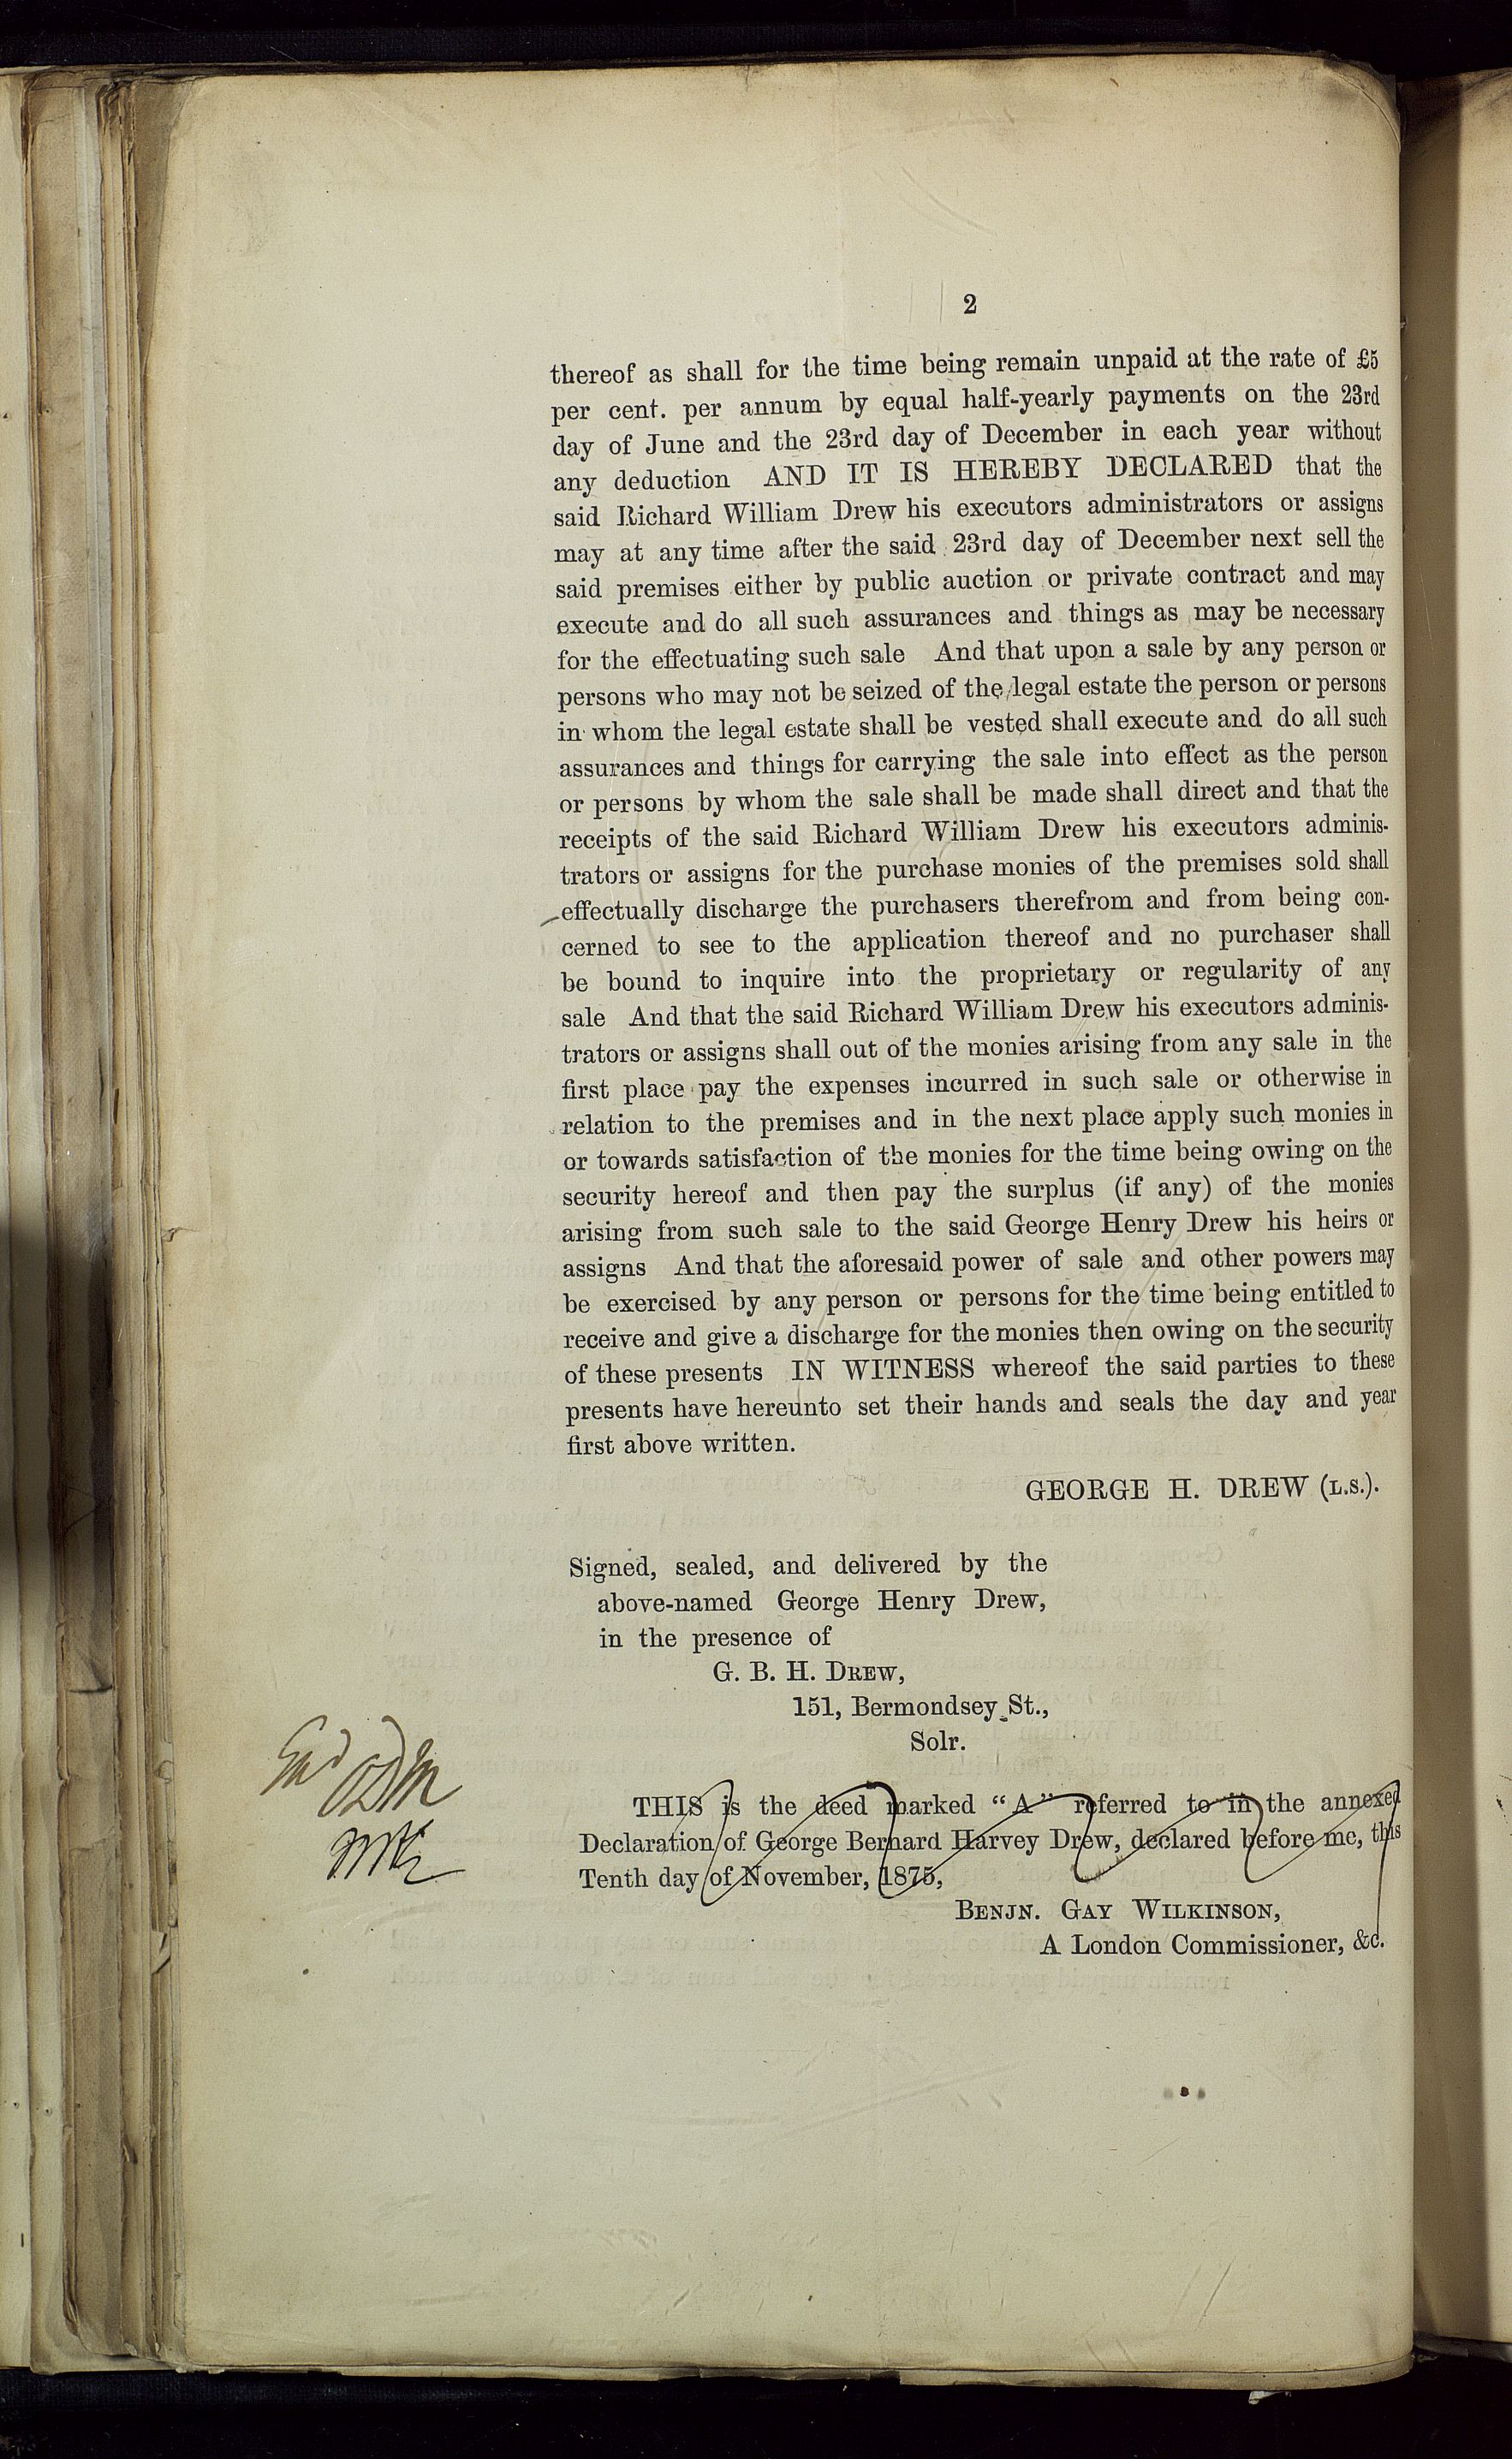 2
thereof as shall for the time being remain unpaid at the rate of £5
per cent. per annum by equal half-yearly payments on the 23rd
day of June and the 23rd day of December in each year without
any deduction AND IT IS HEREBY DECLARED that the
said Richard William Drew his executors administrators or assigns
may at any time after the said 23rd day of December next sell the
said premises either by public auction or private contract and may
execute and do all such assurances and things as may be necessary
for the effectuating such sale And that upon a sale by any person or
persons who may not be seized of the legal estate the person or persons
in whom the legal estate shall be vested shall execute and do all such
assurances and things for carrying the sale into effect as the person
or persons by whom the sale shall be made shall direct and that the
receipts of the said Richard William Drew his executors adminis-
trators or assigns for the purchase monies of the premises sold shall
effectually discharge the purchasers therefrom and from being con-
cerned to see to the application thereof and no purchaser shall
be bound to inquire into the proprietary or regularity of any
sale And that the said Richard William Drew his executors adminis-
trators or assigns shall out of the monies arising from any sale in the
first place pay the expenses incurred in such sale or otherwise in
relation to the premises and in the next place apply such monies in
or towards satisfaction of the monies for the time being owing on the
security hereof and then pay the surplus (if any) of the monies
arising from such sale to the said George Henry Drew his heirs or
assigns And that the aforesaid power of sale and other powers may
be exercised by any person or persons for the time being entitled to
receive and give a discharge for the monies then owing on the security
of these presents IN WITNESS whereof the said parties to these
presents have hereunto set their hands and seals the day and year
first above written.
GEORGE H. DREW (L.S.).
Signed, sealed, and delivered by the
above-named George Henry Drew,
in the presence of
G. B. H. DREW,
151, Bermondsey St.,
Solr.
THIS is the deed marked "A" referred to in the annexed
Declaration of George Bernard Harvey Drew, declared before me, this
Tenth day of November, 1875,
BENJN. GAY WILKINSON,
A London Commissioner, &c.